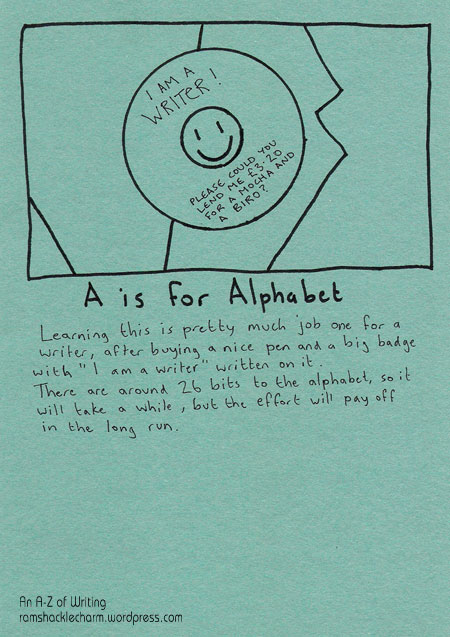 I AM A
WRITER!
PLEASE COULD YOU
LEND ME £3.20
FOR A MOCHA AND
A BIRO?
A is for Alphabet
Learning this is pretty much job one for a
writer, after buying a nice pen and a big badge
with "I am a writer" written on it.
There are around 26 bits to the alphabet, so it
will take a while, but the effort will pay off
in the long run.
An A-Z of Writing
ramshacklecharm.wordpress.com